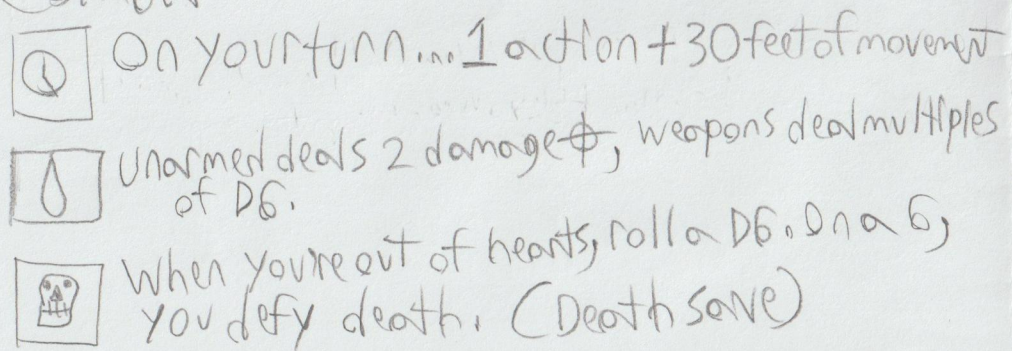 On your turn... 1 action + 30 feet of movement
Unarmed deals 2 damage, weapons deal multiples
of D6.
When you're out of hearts, roll a D6. On a 6,
you defy death. (Death save)